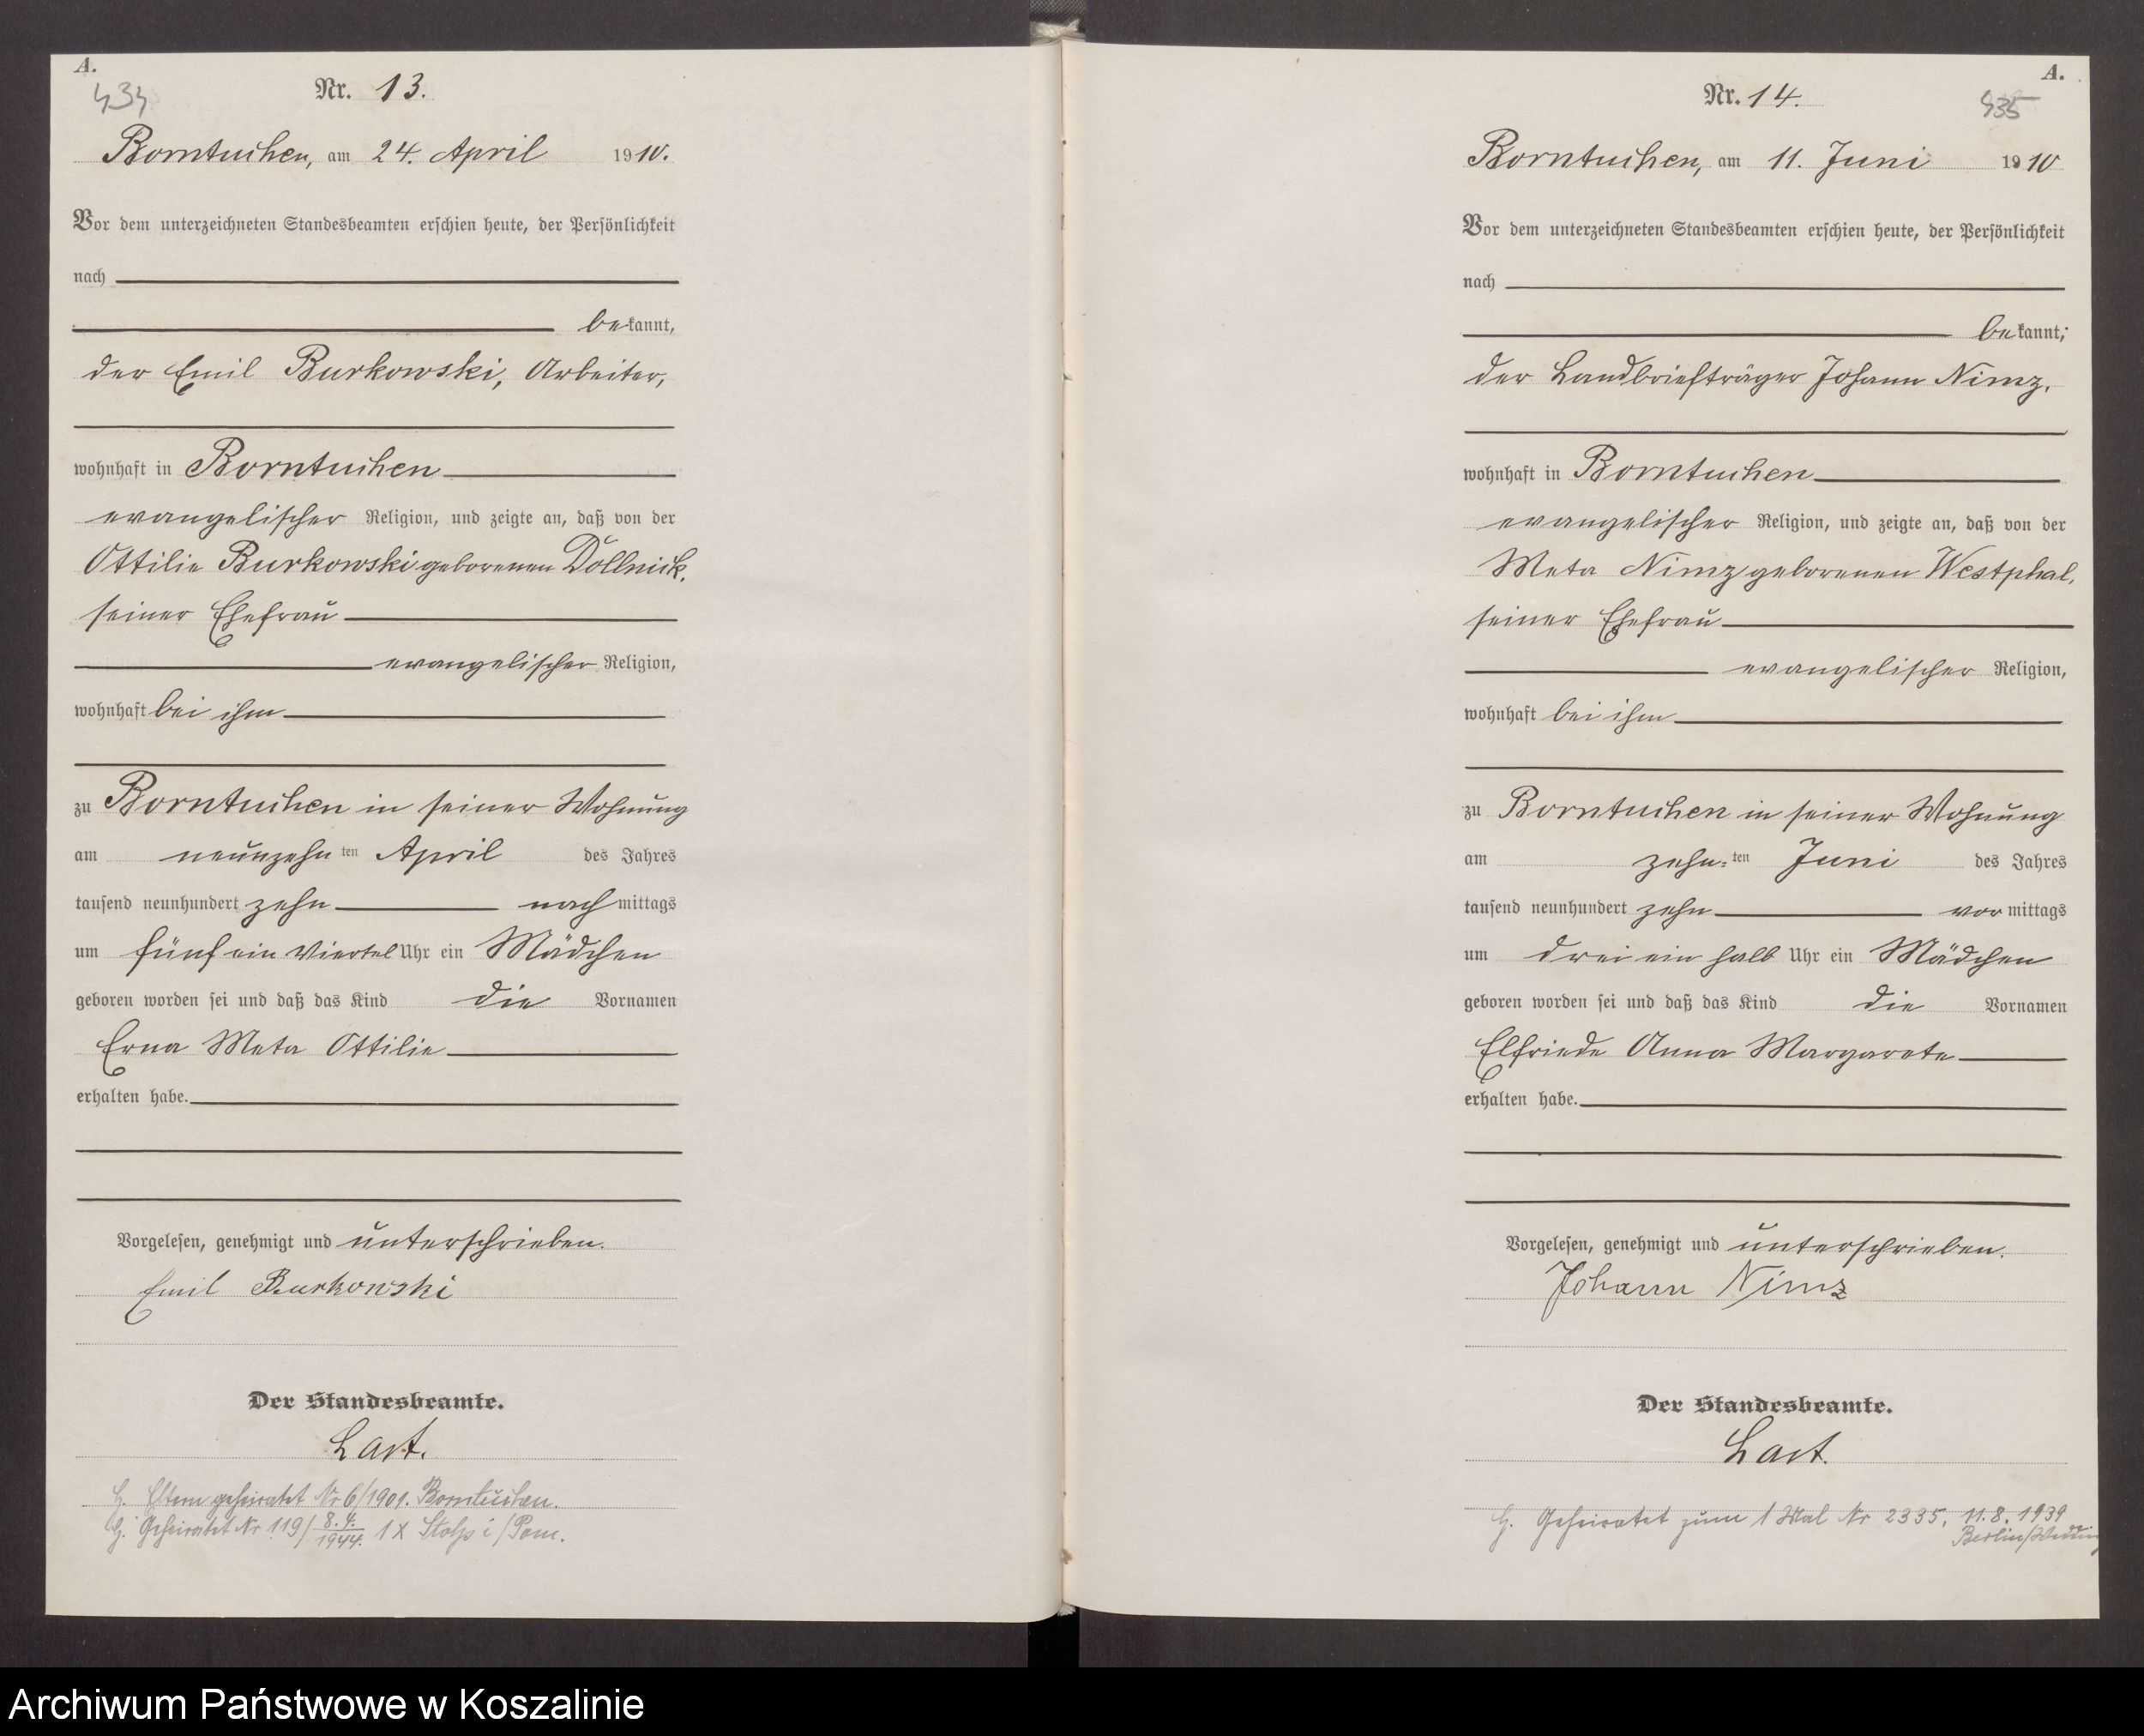 A.
434
Nr. 13.
Borntuchen, am 24. April 1910.
Vor dem unterzeichneten Standesbeamten erschien heute, der Persönlichkeit
nach
bekannt,
der Emil Burkowski, Arbeiter,
wohnhaft in Borntuchen
evangelischer Religion, und zeigte an, daß von der
Ottilie Burkowski geborenen Dollnick,
seiner Ehefrau
evangelischer Religion,
wohnhaft bei ihm
zu Borntuchen in seiner Wohnung
am neunzehnten April des Jahres
tausend neunhundert zehn nachmittags
um fünf ein Viertel Uhr ein Mädchen
geboren worden sei und daß das Kind die Vornamen
Erna Meta Ottilie
erhalten habe.
Vorgelesen, genehmigt und unterschrieben.
Emil Burkowski
Der Standesbeamte.
Last.
Eltern geheiratet Nr 6/1901. Borntuchen.
Geheiratet Nr 119/8.4.1944. 1 x Stolp i/Pom.
A.
435
Nr. 14.
Borntuchen, am 11. Juni 1910
Vor dem unterzeichneten Standesbeamten erschien heute, der Persönlichkeit
nach
bekannt,
der Landbriefträger Johann Nimz,
wohnhaft in Borntuchen
evangelischer Religion, und zeigte an, daß von der
Meta Nimz geborenen Westphal,
seiner Ehefrau
evangelischer Religion,
wohnhaft bei ihm
zu Borntuchen in seiner Wohnung
am zehn-ten Juni des Jahres
tausend neunhundert zehn vormittags
um drei ein halb Uhr ein Mädchen
geboren worden sei und daß das Kind die Vornamen
Elfriede Anna Margarete
erhalten habe.
Vorgelesen, genehmigt und unterschrieben.
Johann Nimz
Der Standesbeamte.
Last.
Geheiratet zum 1 Mal Nr 2335, 11.8.1939
Berlin/Wedding
Archiwum Państwowe w Koszalinie